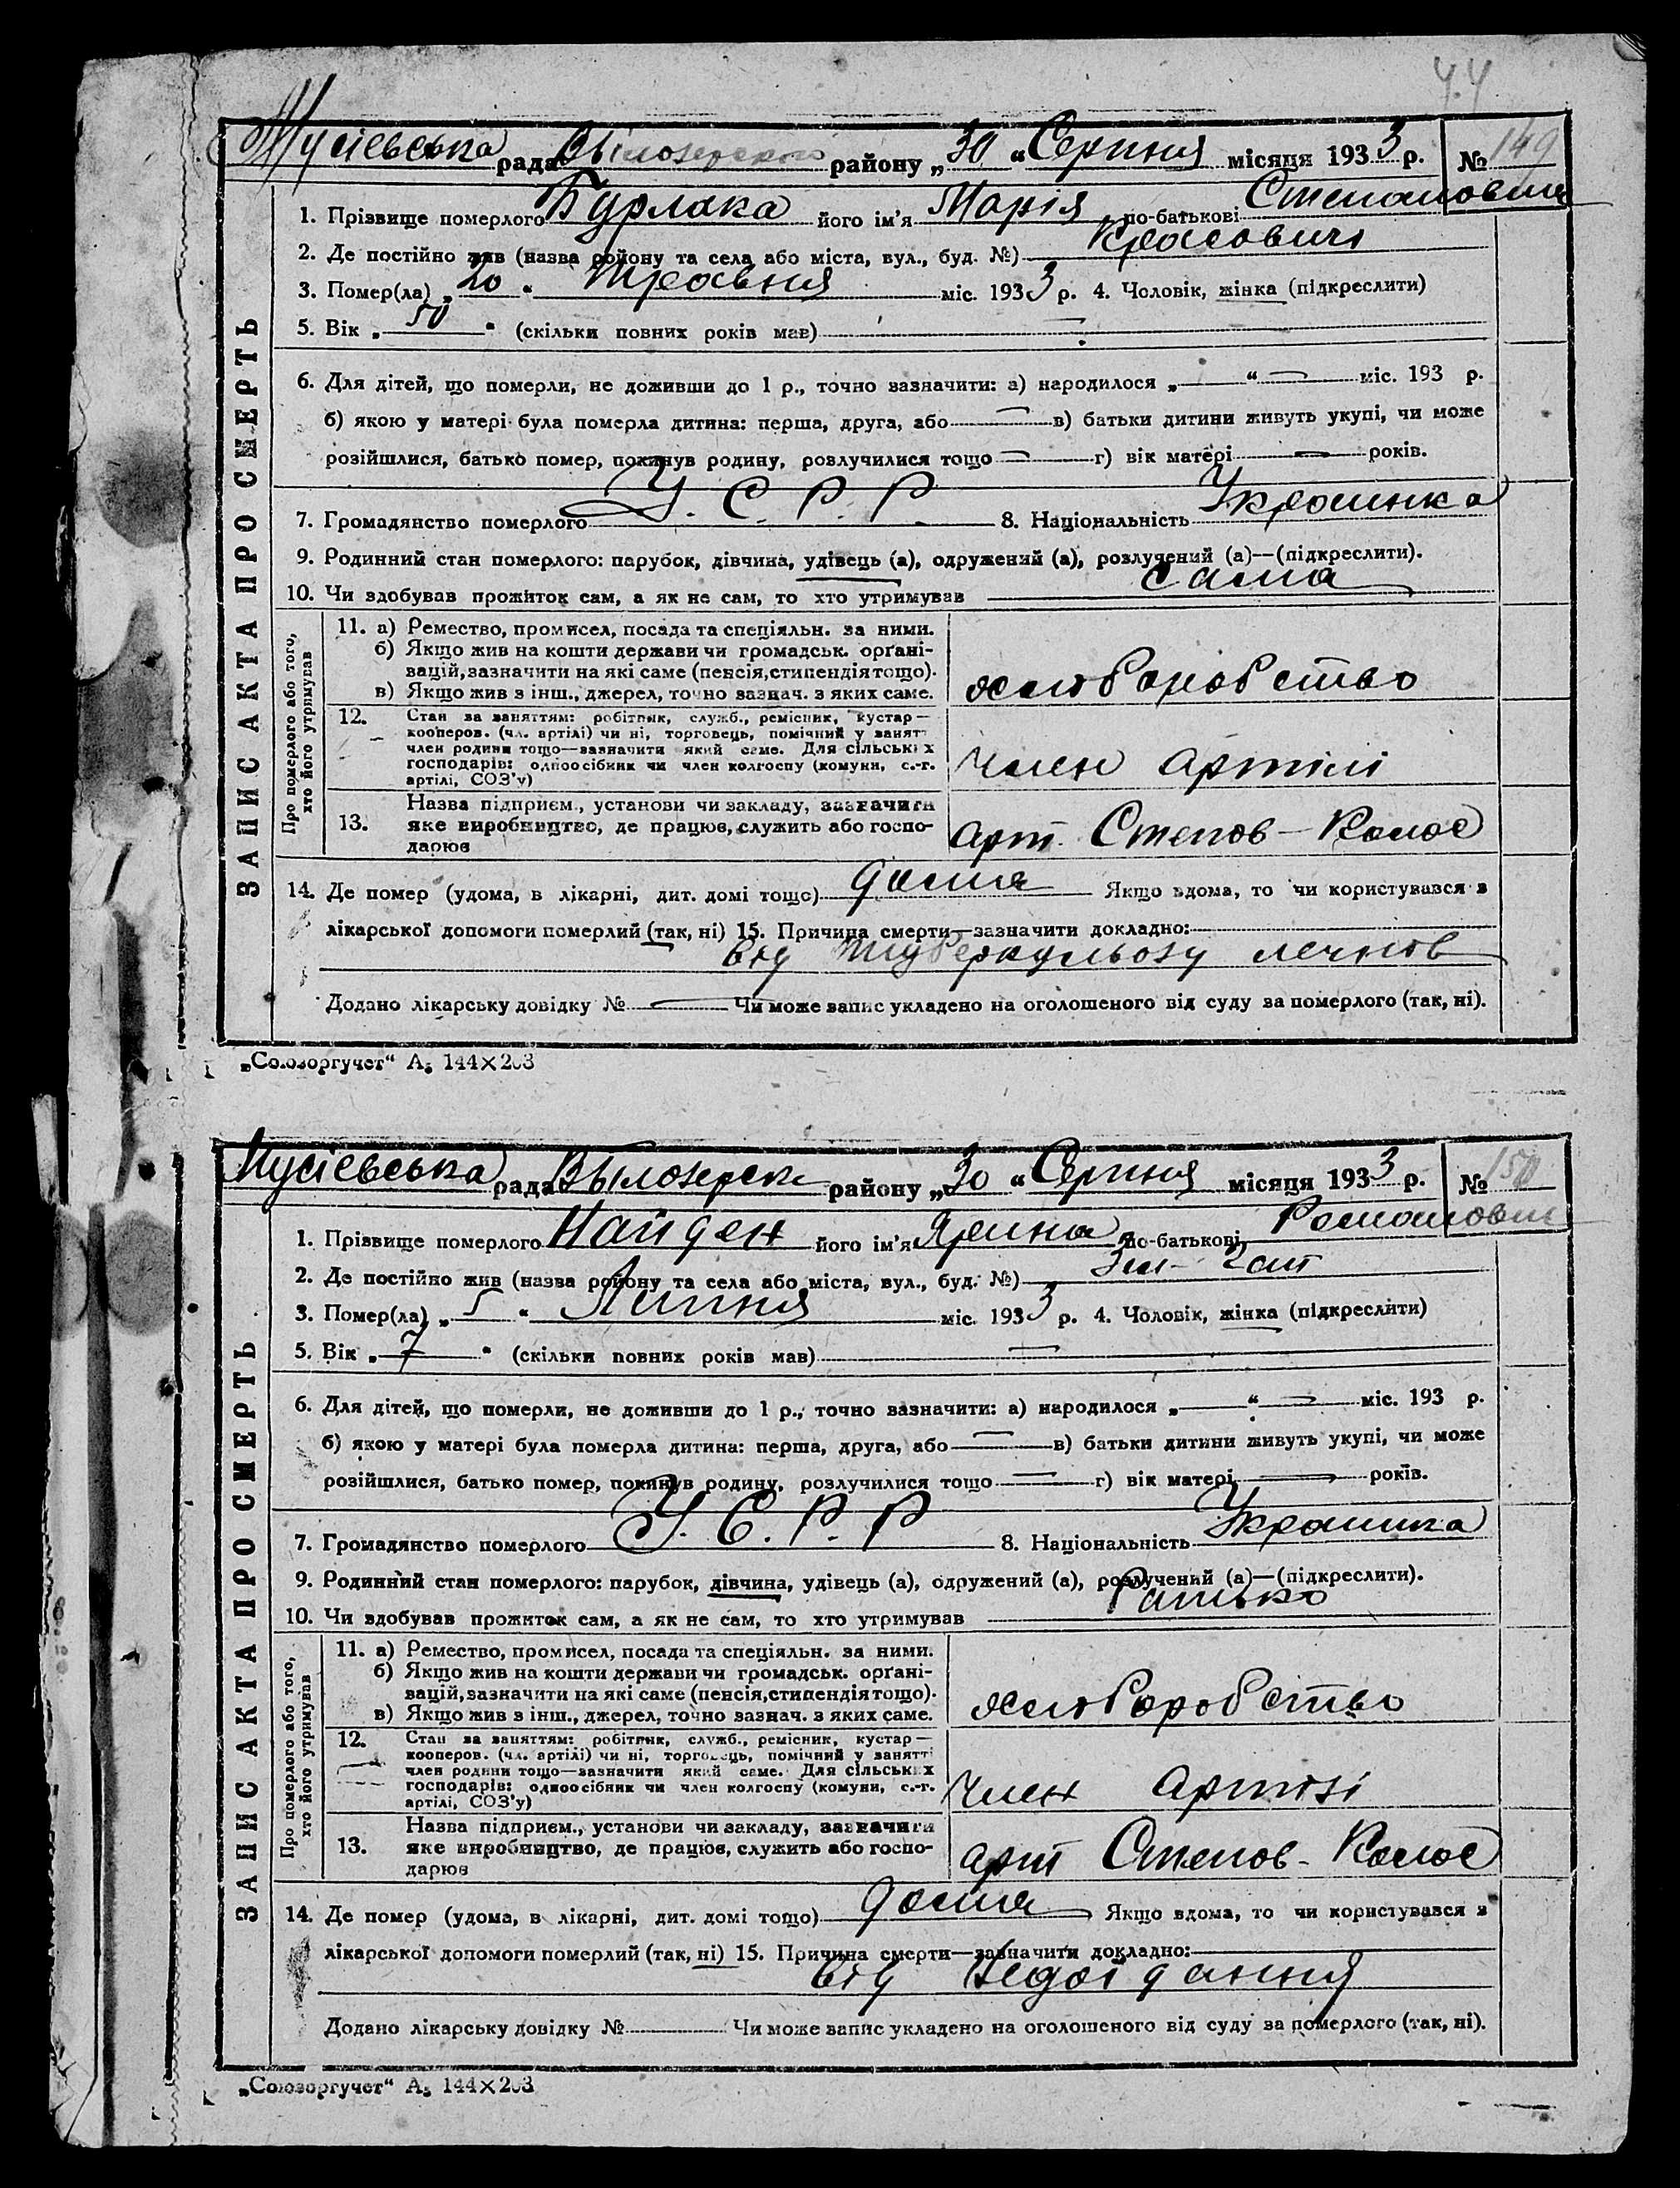 44
Мусієвська рада Білозерськ району „30“ Серпня місяця 1933 р. № 149
1. Прізвище померлого Бурлака його ім’я Марія по-батькові Степановна
2. Де постійно жив (назва району та села або міста, вул., буд. №) Красовичі
3. Помер(ла) „20“ травня міс. 1933 р. 4. Чоловік, жінка (підкреслити)
5. Вік „50“ (скільки повних років мав)
6. Для дітей, що померли, не доживши до 1 р., точно зазначити: а) народилося „ “ міс. 193 р.
б) якою у матері була померла дитина: перша, друга, або в) батьки дитини живуть укупі, чи може
розійшлися, батько помер, покинув родину, розлучилися тощо г) вік матері років.
7. Громадянство померлого У. С. Р. Р. 8. Національність Украинка
9. Родинний стан померлого: парубок, дівчина, удівець (а), одружений (а), розлучений (а)—(підкреслити).
10. Чи здобував прожиток сам, а як не сам, то хто утримував сама
ЗАПИС АКТА ПРО СМЕРТЬ
Про померлого або того, хто його утримував
11. а) Ремество, промисел, посада та спеціяльн. за ними.
б) Якщо жив на кошти держави чи громадськ. орґані-
зацій, зазначити на які саме (пенсія, стипендія тощо).
в) Якщо жив з інш., джерел, точно зазнач. з яких саме.
хліборобство
12. Стан за заняттям: робітник, служб., ремісник, кустар—
кооперов. (чл. артілі) чи ні, торговець, помічний у занятт
член родини тощо—зазначити який саме. Для сільських
господарів: одноосібник чи член колгоспу (комуни, с.-г.
артілі, СОЗ’у)
член артілі
Назва підприєм., установи чи закладу, зазначити
13. яке виробництво, де працює, служить або госпо-
дарює
арт. Степов-Колос
14. Де помер (удома, в лікарні, дит. домі тощо) дома Якщо вдома, то чи користувався з
лікарської допомоги померлий (так, ні) 15. Причина смерти—зазначити докладно:
від туберкульозу
Додано лікарську довідку № Чи може запис укладено на оголошеного від суду за померлого (так, ні).
„Союзоргучет“ А₅ 144×203
Мусієвська рада Білозерськ району „30“ Серпня місяця 1933 р. № 150
1. Прізвище померлого Найден його ім’я Ярина по-батькові Романовн
2. Де постійно жив (назва району та села або міста, вул., буд. №)
3. Помер(ла) „5“ Липня міс. 1933 р. 4. Чоловік, жінка (підкреслити)
5. Вік „7“ (скільки повних років мав)
6. Для дітей, що померли, не доживши до 1 р., точно зазначити: а) народилося „ “ міс. 193 р.
б) якою у матері була померла дитина: перша, друга, або в) батьки дитини живуть укупі, чи може
розійшлися, батько помер, покинув родину, розлучилися тощо г) вік матері років.
7. Громадянство померлого У. С. Р. Р 8. Національність Украинка
9. Родинний стан померлого: парубок, дівчина, удівець (а), одружений (а), розлучений (а)—(підкреслити).
10. Чи здобував прожиток сам, а як не сам, то хто утримував Батько
ЗАПИС АКТА ПРО СМЕРТЬ
Про померлого або того, хто його утримував
11. а) Ремество, промисел, посада та спеціяльн. за ними.
б) Якщо жив на кошти держави чи громадськ. орґані-
зацій, зазначити на які саме (пенсія, стипендія тощо).
в) Якщо жив з інш., джерел, точно зазнач. з яких саме.
хліборобство
12. Стан за заняттям: робітник, служб., ремісник, кустар—
кооперов. (чл. артілі) чи ні, торговець, помічний у занятті
член родини тощо—зазначити який саме. Для сільських
господарів: одноосібник чи член колгоспу (комуни, с.-г.
артілі, СОЗ’у)
член артілі
Назва підприєм., установи чи закладу, зазначити
13. яке виробництво, де працює, служить або госпо-
дарює
арт Степов-Колос
14. Де помер (удома, в лікарні, дит. домі тощо) дома Якщо вдома, то чи користувався з
лікарської допомоги померлий (так, ні) 15. Причина смерти—зазначити докладно:
від недоїдання
Додано лікарську довідку № Чи може запис укладено на оголошеного від суду за померлого (так, ні).
„Союзоргучет“ А₅ 144×203